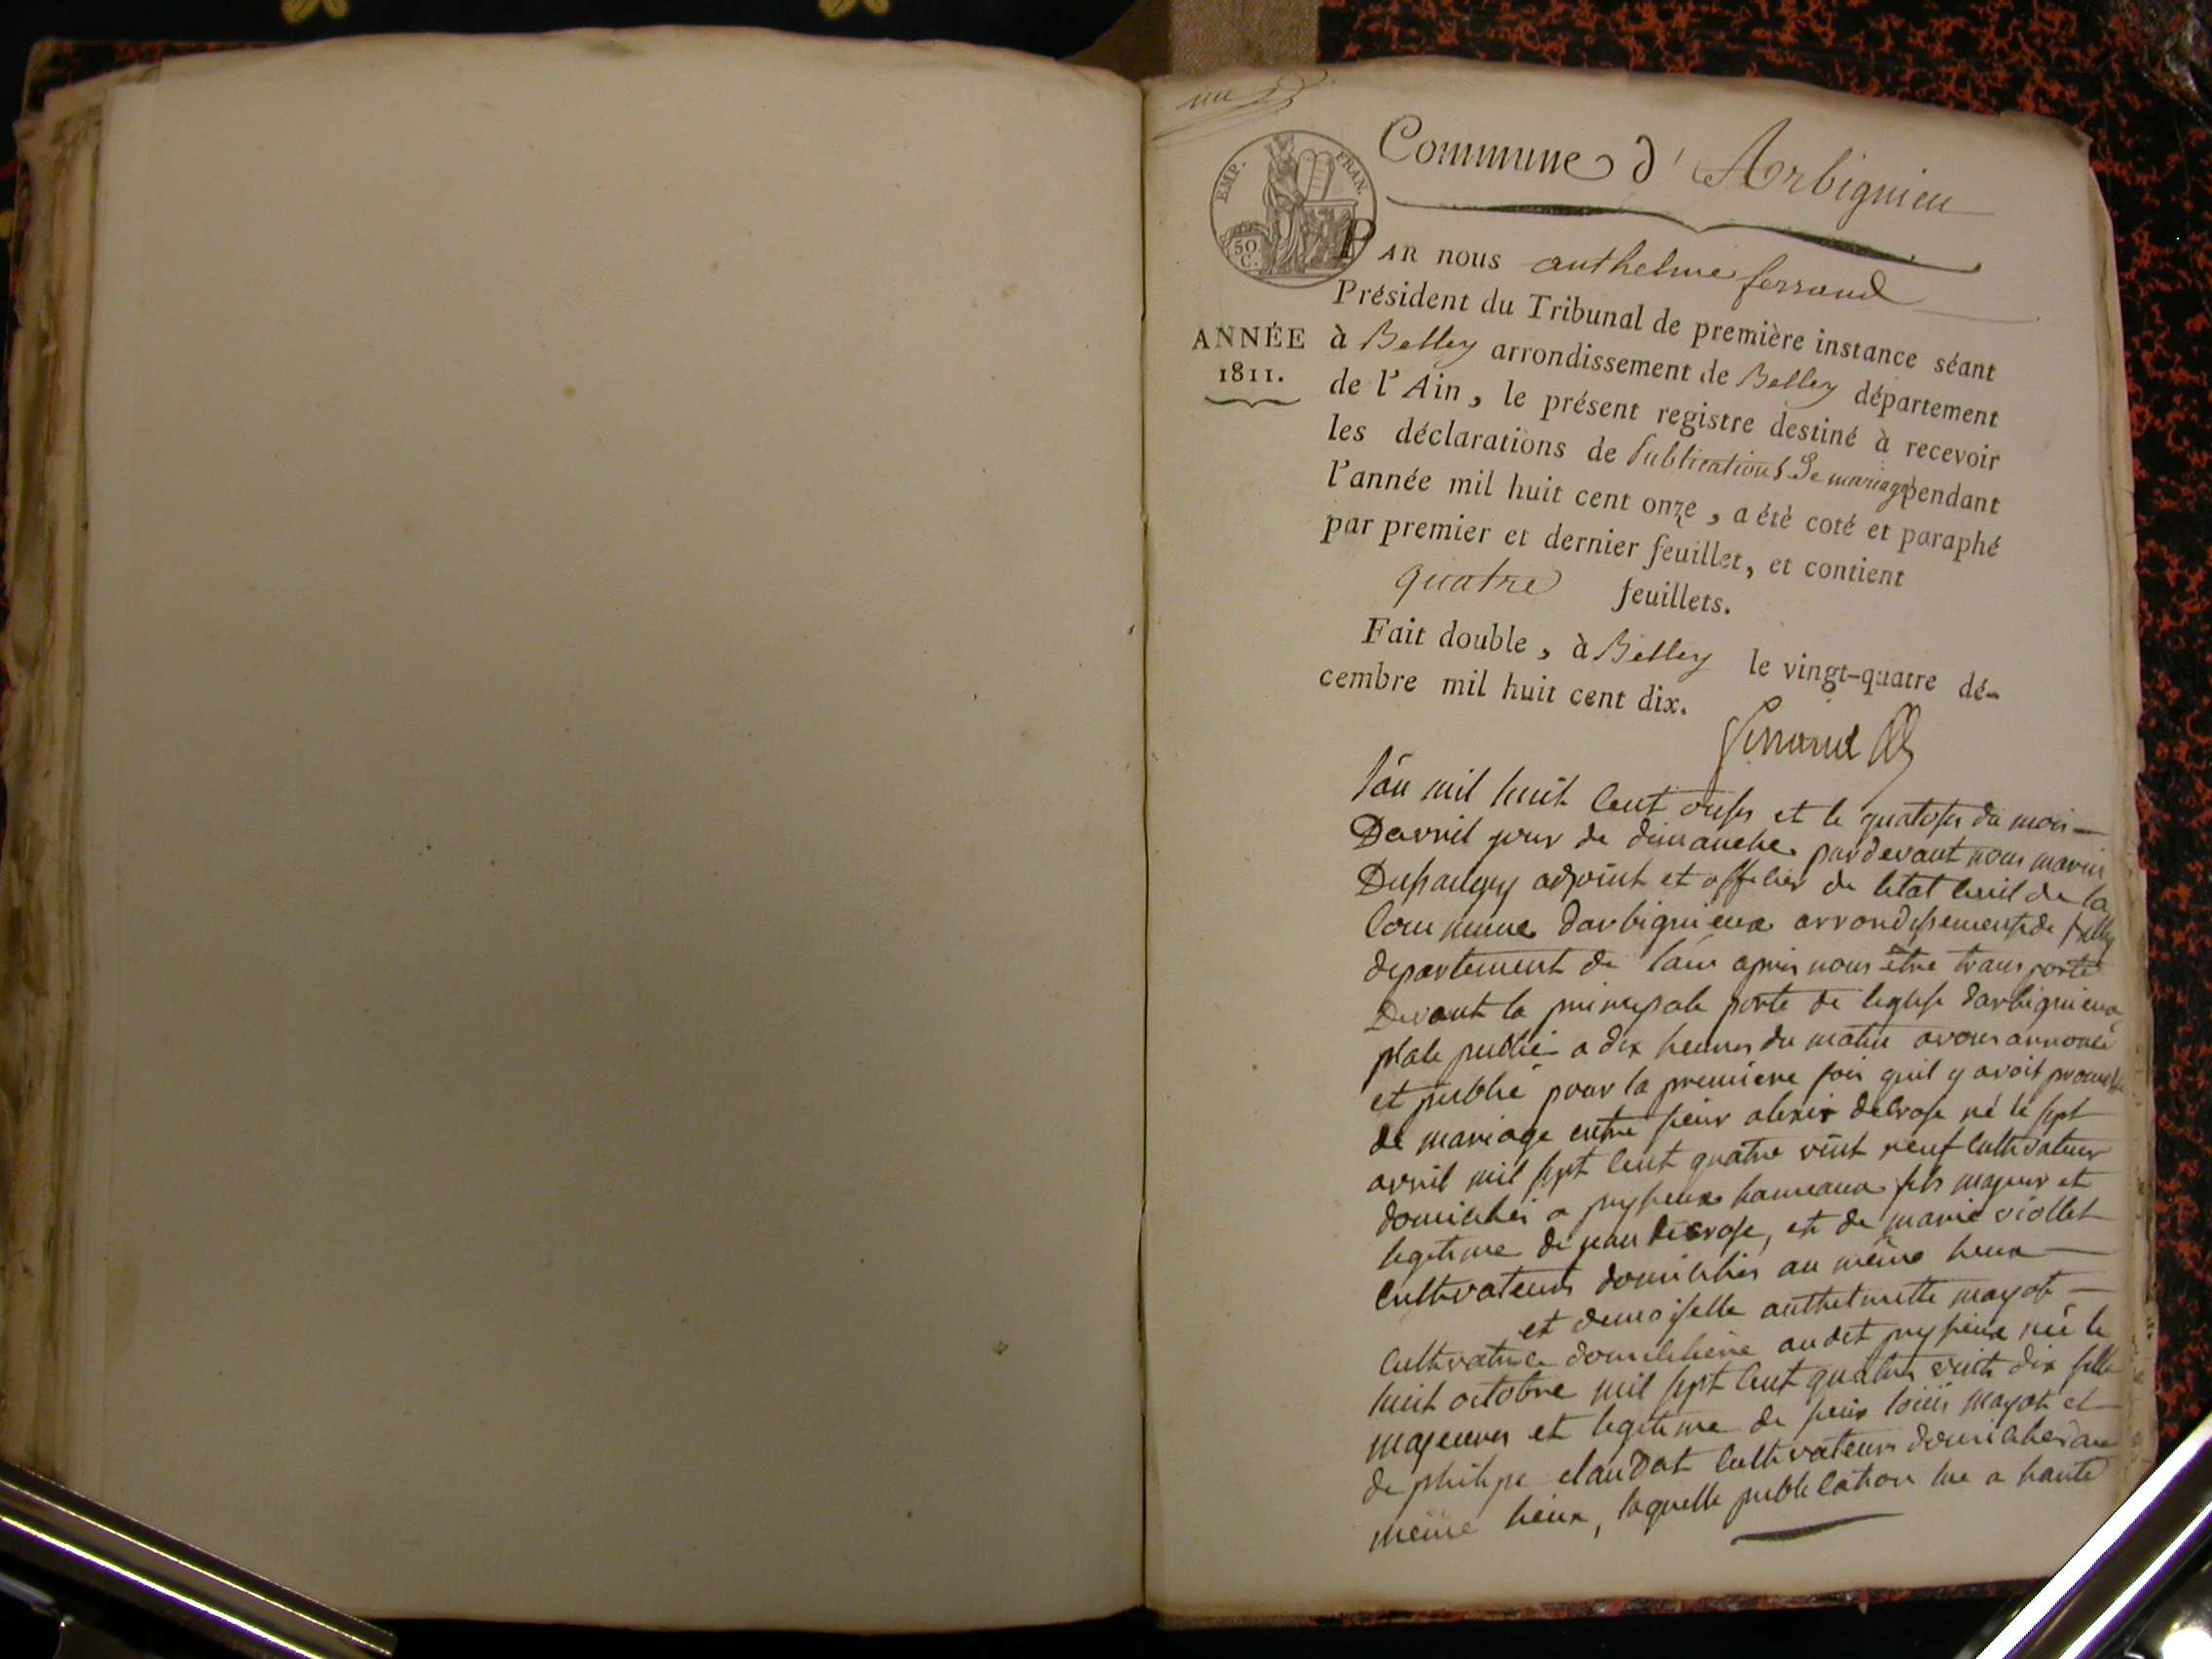 un
Commune d'Arbignieu
EMP. FRAN.
50 C.
ANNÉE
1811.
PAR nous anthelme ferrand
Président du Tribunal de première instance séant
à Belley arrondissement de Belley département
de l'Ain, le présent registre destiné à recevoir
les déclarations de Publications De mariage pendant
l'année mil huit cent onze, a été coté et paraphé
par premier et dernier feuillet, et contient
quatre feuillets.
Fait double, à Belley le vingt-quatre dé-
cembre mil huit cent dix.
Ferrand
l'an mil huit cent onse et le quatorse du mois
Davril jour de dimanche pardevant nous marin
adjoint et officier de letat civil de la
Commune darbignieux arrondissement de belley
departement de lain apres nous être transporté
Devant la principale porte de leglise darbignieux
place publie a dix heures du matin avons annoncé
et publié pour la premiere fois quil y avoit promesse
de mariage entre sieur alexis decrose né le sept
avril mil sept cent quatre vint neuf cultivateur
domicilié a puysieux hameaux fils majeur et
legitime de jean decrose, et de marie viollet
cultivateurs domiciliés au même lieux
et demoiselle anthelmette mayot
cultivatrice domiciliére audit puysieux née le
huit octobre mil sept cent quatre vints dix fille
majeure et legitime de sieur louis mayot et
de philipe claudat cultivateurs domiciliés au
même lieux, laquelle publication lue a haute